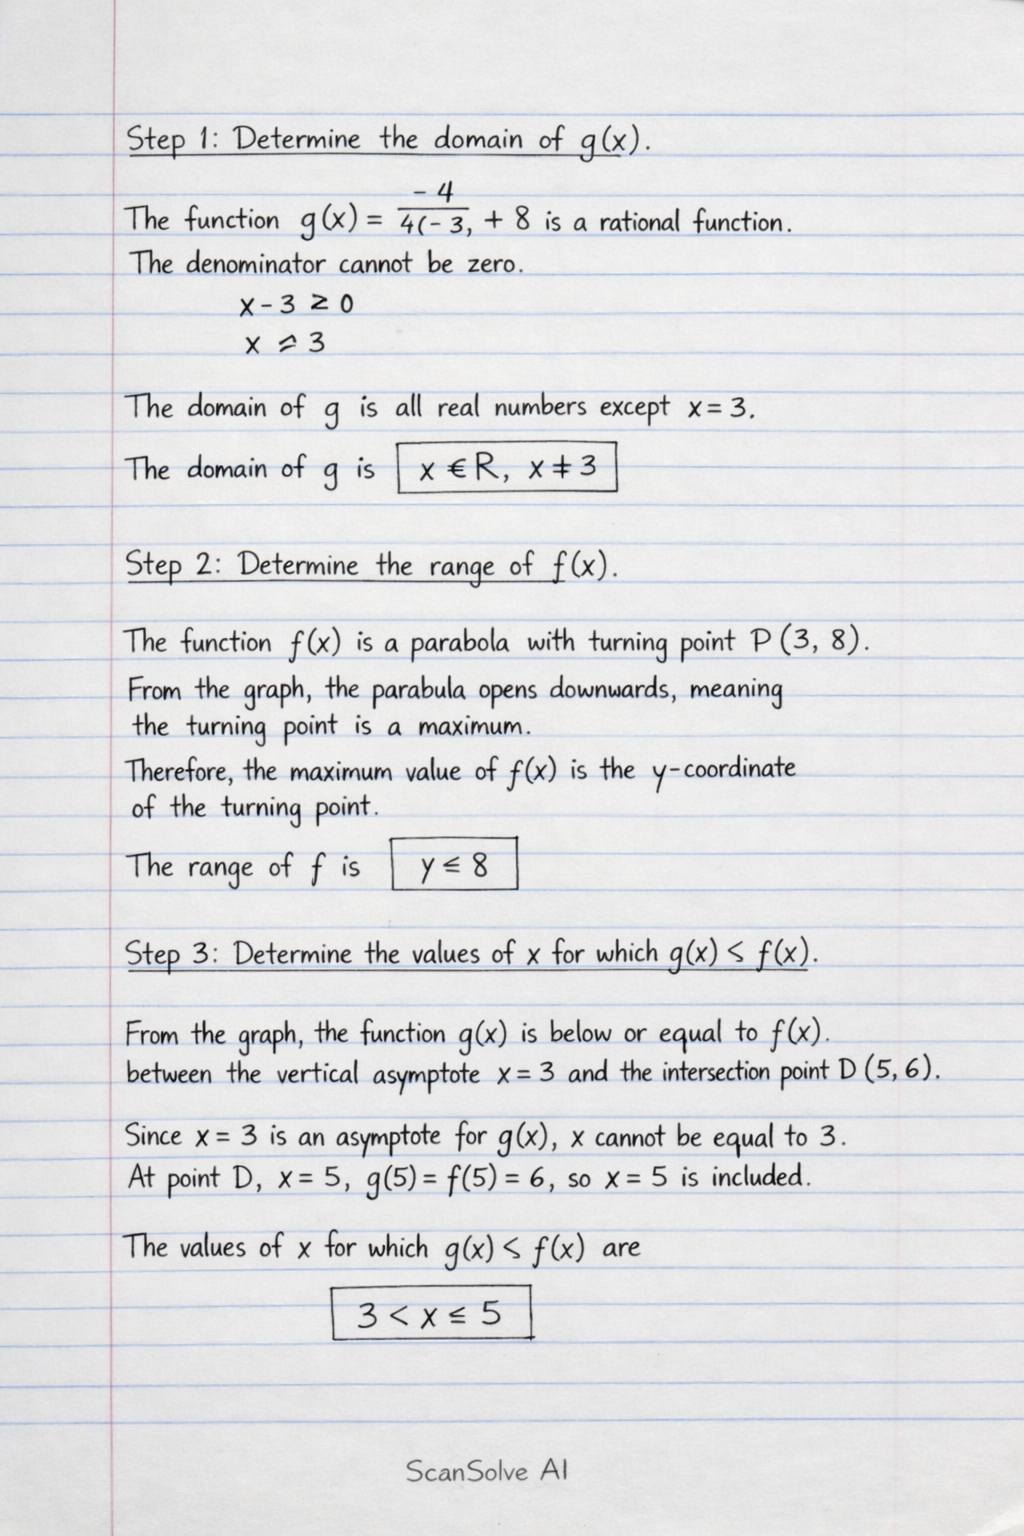 Step 1: Determine the domain of g(x).
- 4
The function g(x) = 4(- 3, + 8 is a rational function.
The denominator cannot be zero.
x - 3 ≥ 0
x ≥ 3
The domain of g is all real numbers except x = 3.
The domain of g is x € R, x ≠ 3
Step 2: Determine the range of f(x).
The function f(x) is a parabola with turning point P (3, 8).
From the graph, the parabula opens downwards, meaning
the turning point is a maximum.
Therefore, the maximum value of f(x) is the y-coordinate
of the turning point.
The range of f is y ≤ 8
Step 3: Determine the values of x for which g(x) ≤ f(x).
From the graph, the function g(x) is below or equal to f(x).
between the vertical asymptote x = 3 and the intersection point D (5, 6).
Since x = 3 is an asymptote for g(x), x cannot be equal to 3.
At point D, x = 5, g(5) = f(5) = 6, so x = 5 is included.
The values of x for which g(x) ≤ f(x) are
3 < x ≤ 5
ScanSolve AI